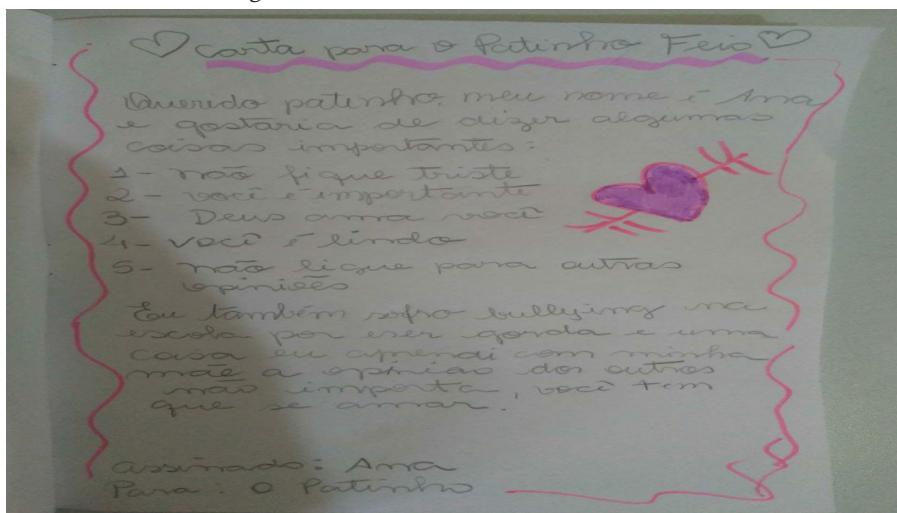 ♡ Carta para o Patinho Feio ♡
Querido patinho, meu nome é Ana
e gostaria de dizer algumas
coisas importantes:
1- não fique triste
2- você é importante
3- Deus ama você
4- você é lindo
5- não ligue para outras
opiniões
Eu também sofro bullying na
escola por eser gorda e uma
coisa eu aprendi com minha
mãe a opinião dos outros
não importa, você tem
que se amar.
assinado: Ana
Para: O Patinho